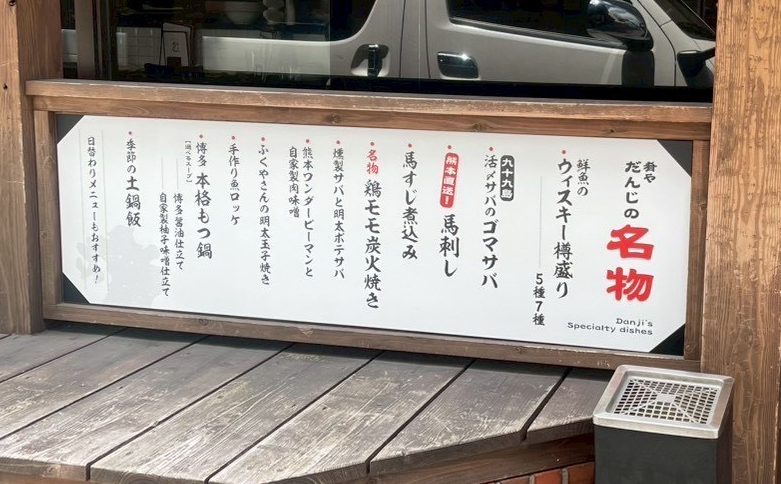 肴や
だんじの
名物
Danji's
Specialty dishes
・鮮魚の
ウィスキー樽盛り
5種7種
・九十九島
活〆サバのゴマサバ
・熊本直送!
馬刺し
・馬すじ煮込み
・名物 鶏モモ炭火焼き
・燻製サバと明太ポテサバ
・熊本ワンダーピーマンと
自家製肉味噌
・ふくやさんの明太玉子焼き
・手作り魚ロッケ
・博多 本格もつ鍋
【選べるスープ】
博多醤油仕立て
自家製柚子味噌仕立て
・季節の土鍋飯
日替わりメニューもおすすめ!